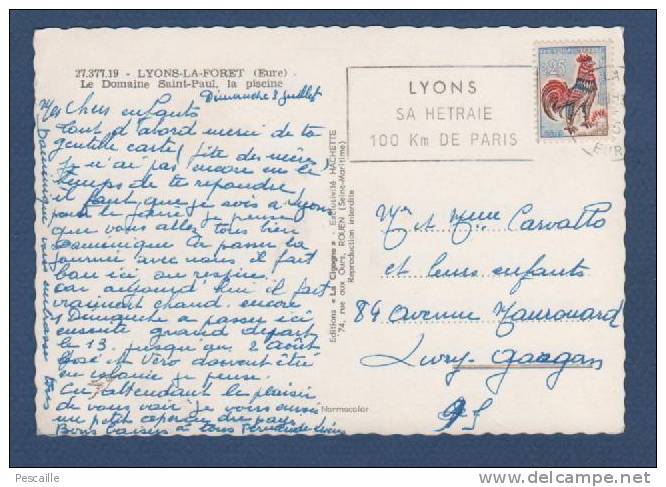 27.377.19 - LYONS-LA-FORET (Eure)
Le Domaine Saint-Paul, la piscine
Dimanche 3 juillet
Mes Chers enfants
Tout d'abord merci de ta
gentille carte (fête des mères)
je n'ai pas encore eu le
temps de te répondre
il faut que je sois à Lyons
pour le faire je pense
que vous allez tous bien
Dominique a passé la
journée avec nous il fait
bon ici on respire
car aujourd'hui il fait
vraiment chaud. encore
1 Dimanche a passer ici
ensuite grand départ
le 13. jusqu'au 2 Août
José et Véro doivent être
en colonie je pense.
En attendant le plaisir
de vous voir je vous envoie
un petit
Bons baisers à tous
Dominique vous embrasse tous
Editions « La Cigogne » - Exclusivité HACHETTE
74, rue aux Ours, ROUEN (Seine-Maritime)
Reproduction interdite
Normacolor
LYONS
SA HETRAIE
100 Km DE PARIS
0,25
EUR
Mr et Mme Carvatto
et leurs enfants
84 avenue
Livry Gargan
Pescaille
www.delcampe.net